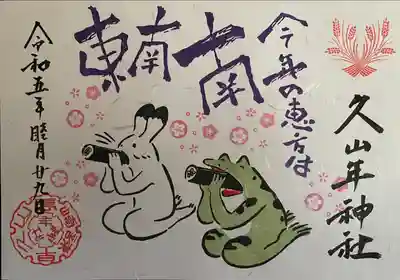 今年の恵方は
南南東
久山年神社
令和五年睦月廿九日